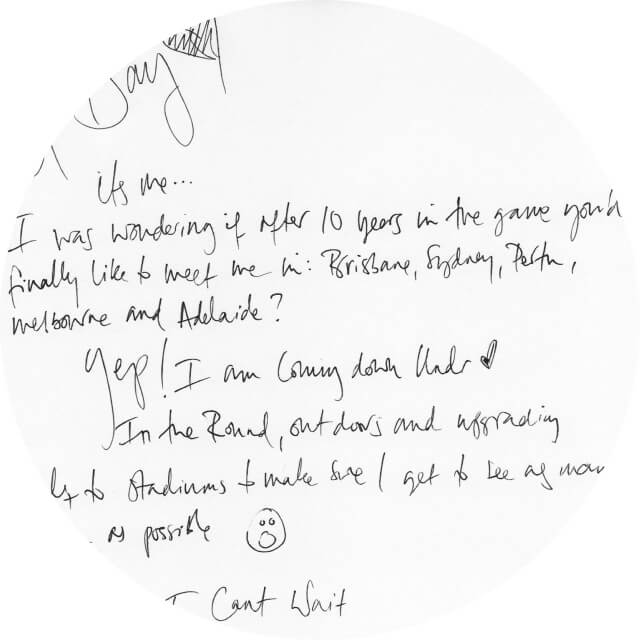 Day
its me...
I was wondering if after 10 years in the game you'd
finally like to meet me in: Brisbane, Sydney, Perth,
Melbourne and Adelaide?
Yep! I am coming down Under
In the Round, outdoors and upgrading
to stadiums to make sure I get to see as man
as possible
I Cant Wait